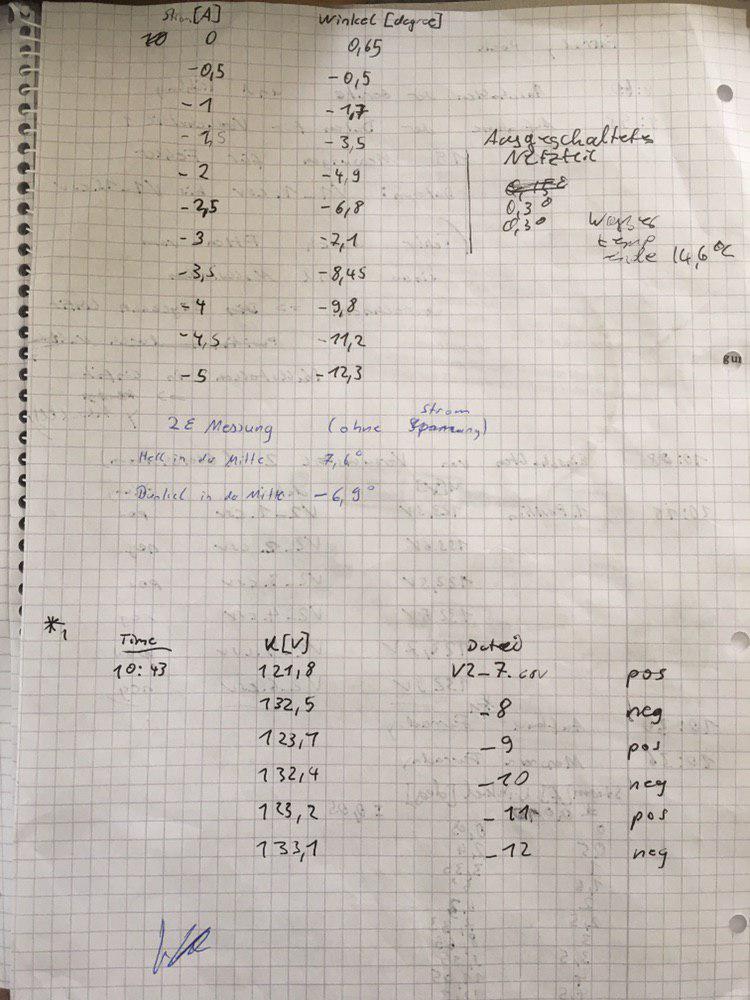 Strom [A] Winkel [degree]
0 0,65
-0,5 -0,5
-1 -1,7
-1,5 -3,5
-2 -4,9
-2,5 -6,8
-3 -7,1
-3,5 -8,45
-4 -9,8
-4,5 -11,2
-5 -12,3
Ausgeschaltetes
Netzteil
0,3°
0,3°
Wasser
temp
ende 14,6°C
2E Messung (ohne Strom
Hell in der Mitte 7,6°
Dunkel in der Mitte -6,9°
*1
Time U[V] Datei
10:43 121,8 V2_7.csv pos
132,5 _8 neg
123,1 _9 pos
132,4 _10 neg
123,2 _11 pos
133,1 _12 neg
gui